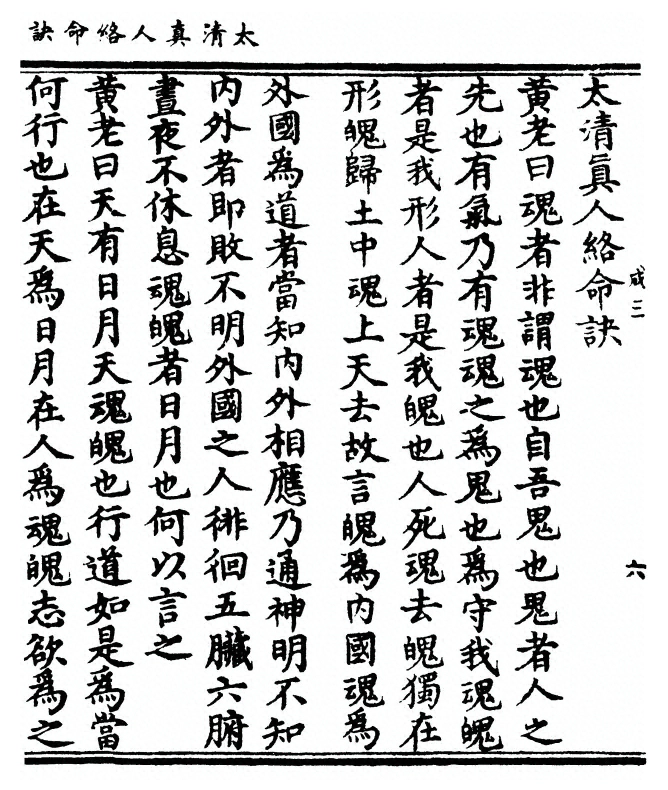 太清真人絡命訣
咸三
六
太清真人絡命訣
黃老曰魂者非謂魂也自吾鬼也鬼者人之
先也有氣乃有魂魂之為鬼也為守我魂魄
者是我形人者是我魄也人死魂去魄獨在
形魄歸土中魂上天去故言魄為內國魂為
外國為道者當知內外相應乃通神明不知
內外者即敗不明外國之人徘徊五臟六腑
晝夜不休息魂魄者日月也何以言之
黃老曰天有日月天魂魄也行道如是為當
何行也在天為日月在人為魂魄志欲為之